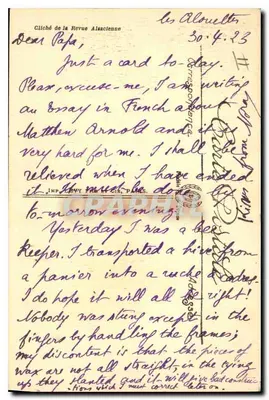 Cliché de la Revue Alsacienne
les Alouettes
30.4.23
Dear Papa,
Just a card to-day.
Please, excuse-me, I am writing
an Essay in French about
Matthew Arnold and it
very hard for me. I shall
relieved when I have ended
it. It must be done by
to-morrow evening.
Yesterday I was a bee
Keeper. I transported a hive from
a panier into a ruche à cadres.
I do hope it will all go right!
Nobody was stung except in the
fingers by handling the frames;
my discontent is that the pieces of
wax are not all straight, in the tying
up they slanted, and it will give bad construc
tions which must correct later on.
Correspondance
Kisses from